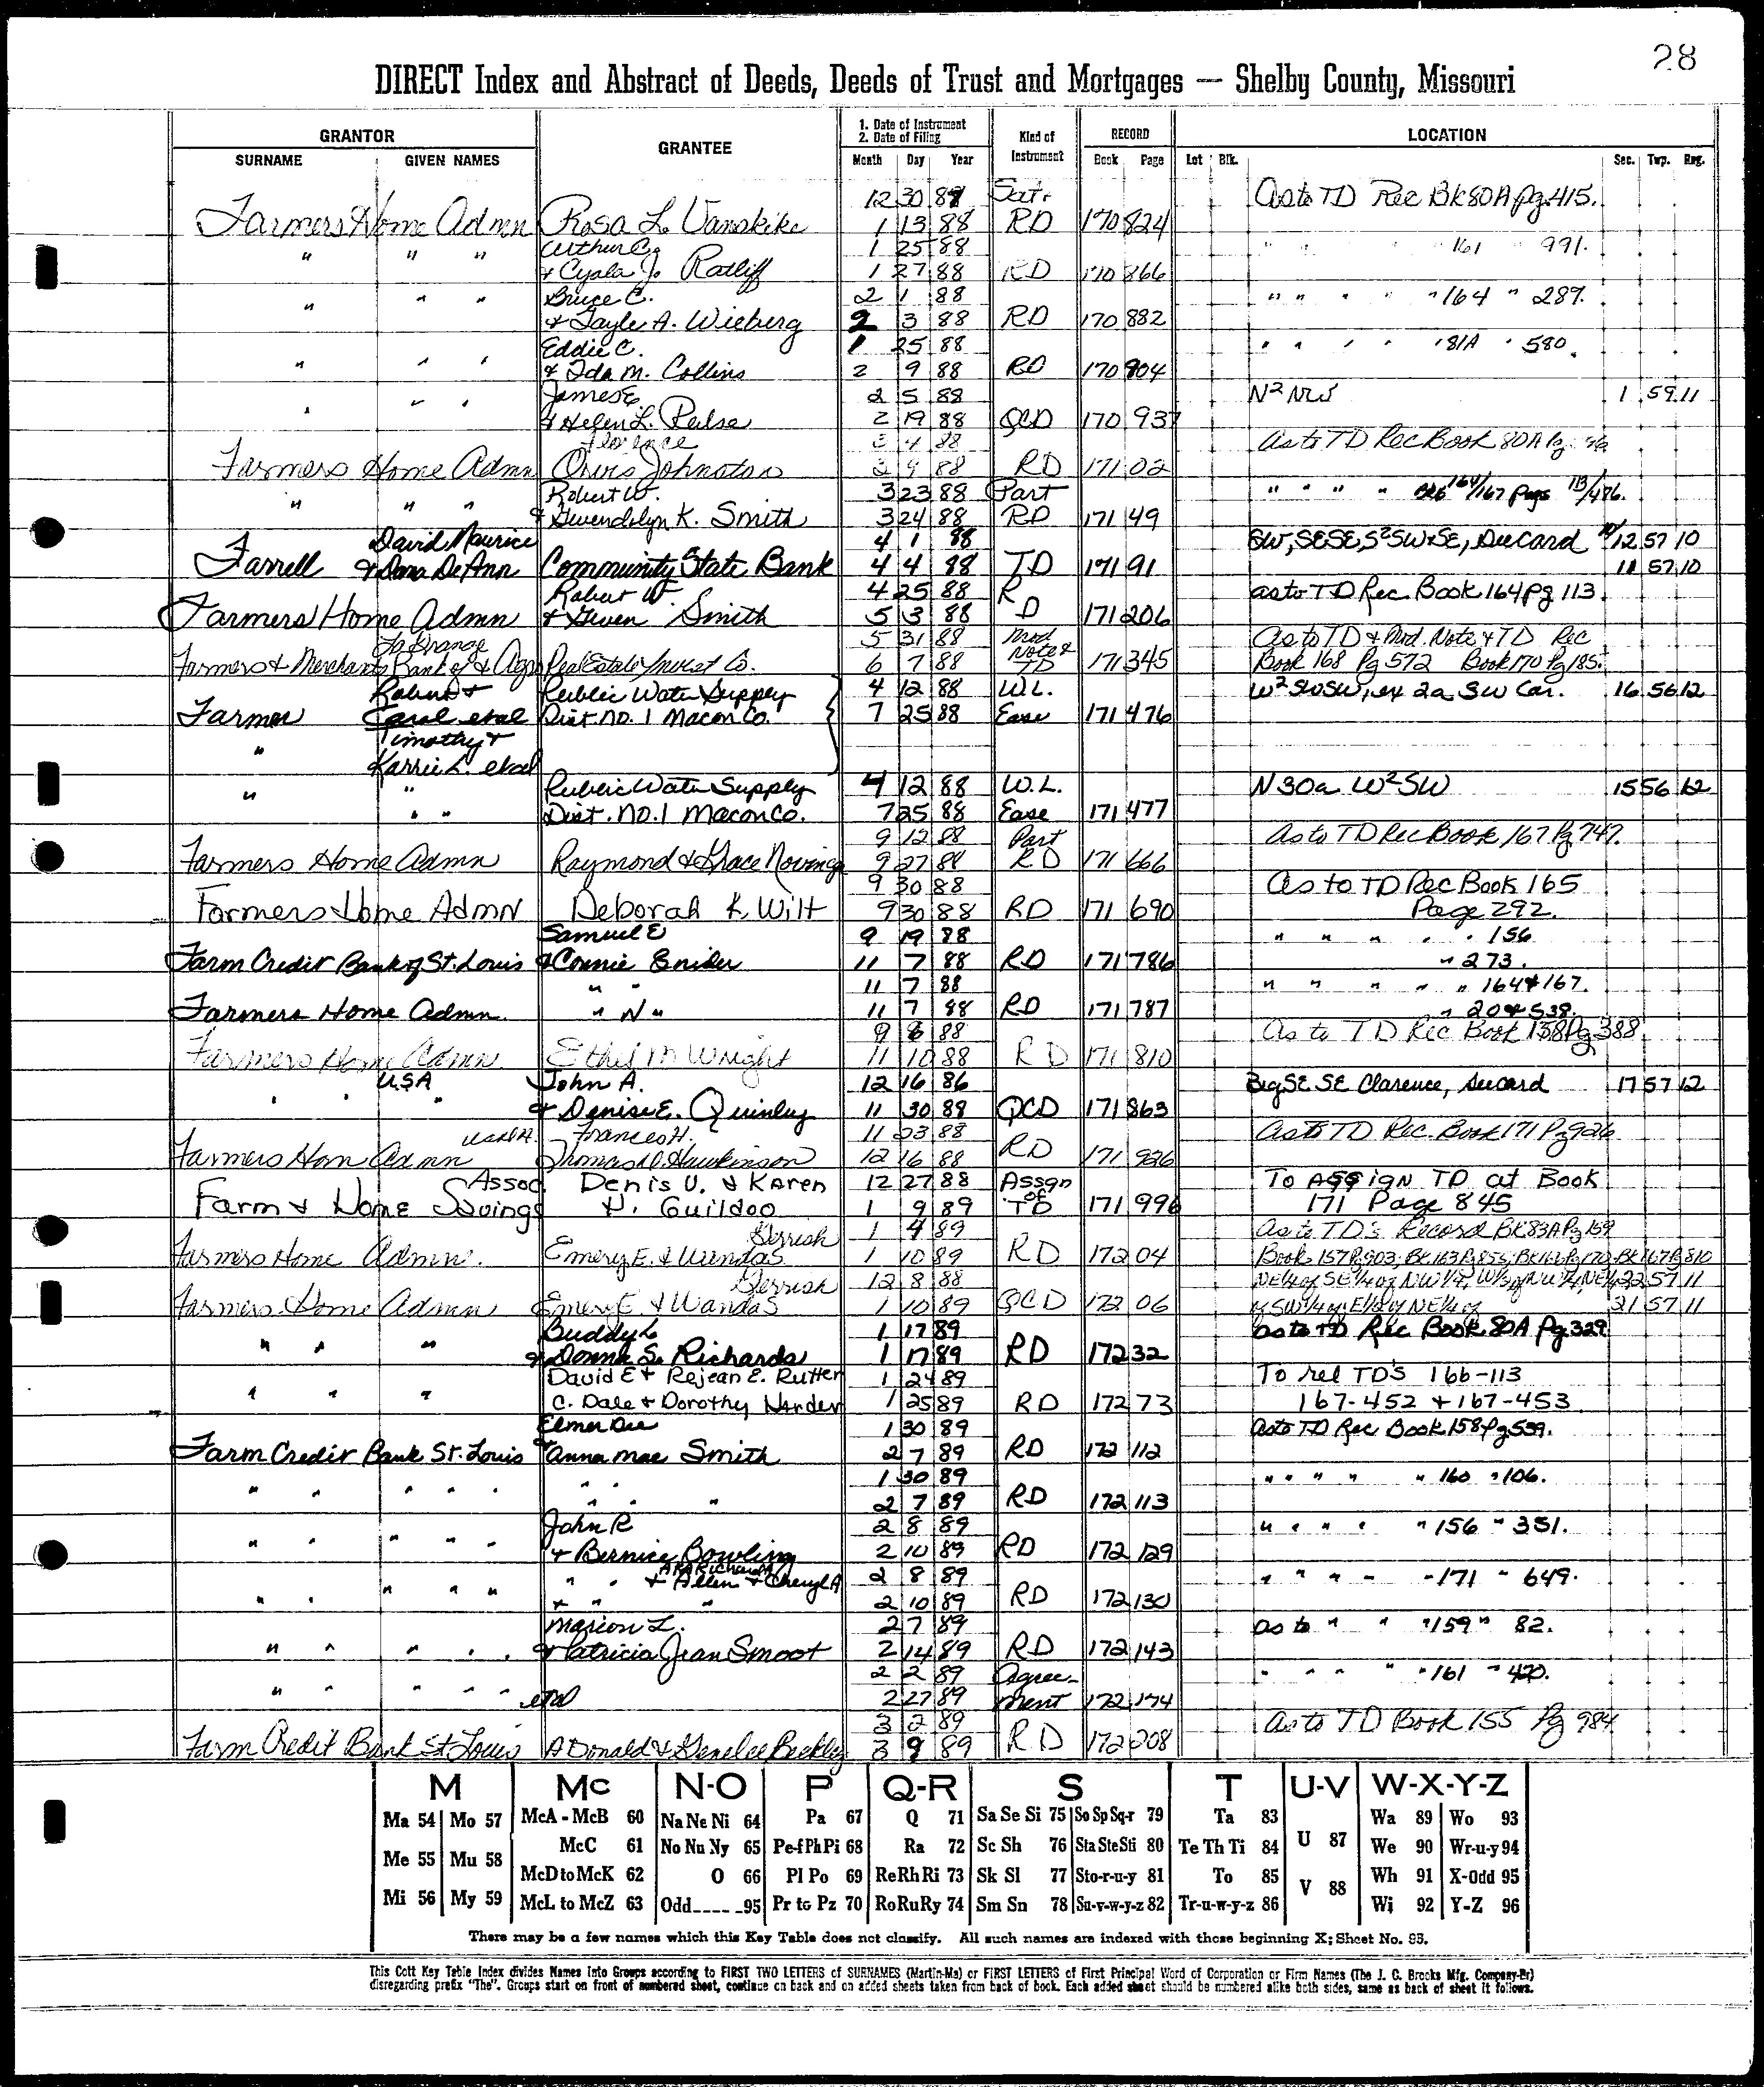 28
DIRECT Index and Abstract of Deeds, Deeds of Trust and Mortgages — Shelby County, Missouri
GRANTOR GRANTEE 1. Date of Instrument 2. Date of Filing Kind of Instrument RECORD LOCATION
SURNAME GIVEN NAMES Month Day Year Book Page Lot Blk. Sec. Twp. Rng.
12 30 87 Sat. As to TD Rec Bk 80A Pg 415.
Farmers Home Admn Rosa L. Vanskike 1 13 88 RD 170 824
Arthur C. 1 25 88 " " " 161 " 991.
" " " & Cyala J. Ratliff 1 27 88 RD 170 866
Bruce C. 2 1 88 " " " " " 164 " 289.
" " " & Gayle A. Wieberg 2 3 88 RD 170 882
Eddie C. 1 25 88 " " " " " 81A " 580.
" " " & Ida M. Collins 2 9 88 RD 170 904
James E 2 5 88 N² NW 1 59 11
" " " & Helen L. Pulse 2 19 88 QCD 170 937
Florence 3 4 88 As to TD Rec Book 80A Pg
Farmers Home Admn Orvis Johnston 3 9 88 RD 171 02
Robert W. 3 23 88 Part " " " " Bks 164/167 Pags 113/476.
" " " & Gwendolyn K. Smith 3 24 88 RD 171 49
David Maurice 4 1 88 SW, SESE, S²SW&SE, Duecard 12 57 10
Farrell & Dana DeAnn Community State Bank 4 4 88 TD 171 91 11 57 10
Robert W 4 25 88 R as to TD Rec. Book 164 pg 113.
Farmers Home Admn & Gwen Smith 5 3 88 D 171 206
LaGrange 5 31 88 Mod Note & As to TD & Mod. Note & TD Rec
Farmers & Merchants Bank of & Agri Real Estate Invest Co. 6 7 88 TD 171 345 Book 168 Pg 572 Book 170 Pg 185.
Robert & Public Water Supply 4 12 88 W.L. W² SWSW, ex 2a SW Cor. 16 56 12
Farmer Carol etal Dist. No. 1 Macon Co. 7 25 88 Ease 171 476
Timothy &
" Karrie L. etal
" " Public Water Supply 4 12 88 W.L. N 30a W² SW 15 56 12
" " Dist. No. 1 Macon Co. 7 25 88 Ease 171 477
9 12 88 Part As to TD Rec Book 167 Pg 747.
Farmers Home Admn Raymond & Grace Novinger 9 27 88 RD 171 666
9 30 88 As to TD Rec Book 165
Farmers Home Admn Deborah K Wilt 9 30 88 RD 171 690 Page 292.
Samuel E 9 19 88 " " " " " 156
Farm Credit Bank of St. Louis & Connie Snider 11 7 88 RD 171 786 " 273.
" " 11 7 88 " " " " " 164 & 167.
Farmers Home Admn. " N " 11 7 88 RD 171 787 " 20 & 538.
9 8 88 As to TD Rec Book 158 Pg 388
Farmers Home Admn. Ethel M Wright 11 10 88 RD 171 810
USA John A. 12 16 86 Beg SE SE Clarence, Duecard 17 57 12
" " " & Denise E. Quinley 11 30 88 QCD 171 863
Frances H. 11 23 88 As to TD Rec. Book 171 Pg 926
Farmers Hom Admn Thomas D. Hawkinson 12 16 88 RD 171 926
Assoc. Denis U. & Karen 12 27 88 Assgn of To Assign TD at Book
Farm & Home Savings H. Guildoo 1 9 89 TD 171 996 171 Page 845
Gerrish 1 4 89 As to TD's Record Bk 83A Pg 159
Farmers Home Admn. Emery E. & Wanda S 1 10 89 RD 172 04 Book 157 Pg 903, Bk 163 Pg 855, Bk 166 Pg 170, Bk 167 Pg 810
Gerrish 12 8 88 NE¼ of SE¼ of NW¼, W½ of NW¼, NE¼ 22 57 11
Farmers Home Admn Emery E. & Wanda S 1 10 89 QCD 172 06 of SW¼ of, E½ of NE¼ of 21 57 11
Buddy L 1 17 89 as to TD Rec Book 80A Pg 329
" " " & Donna S. Richards 1 17 89 RD 172 32
David E & Rejean E. Rutter 1 24 89 To rel TD's 166-113
" " " C. Dale & Dorothy Harden 1 25 89 RD 172 73 167-452 & 167-453
Elmer Dee 1 30 89 as to TD Rec Book 158 Pg 539.
Farm Credit Bank St. Louis & Anna Mae Smith 2 7 89 RD 172 112
" " 1 30 89 " " " " " 160 " 106.
" " " " " " " " 2 7 89 RD 172 113
John R 2 8 89 " " " " " 156 " 351.
" " " " " & Bernice Bowling 2 10 89 RD 172 129
" " & Allen & Cheryl A 2 8 89 " " " " " 171 " 649.
" " " " " & " " 2 10 89 RD 172 130
Marion L. 2 7 89 as to " " " 159 " 82.
" " " " " & Patricia Jean Smoot 2 14 89 RD 172 143
2 2 89 Agree- " " " " " 161 " 420.
" " " " " etal 2 27 89 ment 172 174
3 2 89 As to TD Book 155 Pg 984
Farm Credit Bank St Louis A Donald & Genelee Beckley 3 9 89 RD 172 208
M Mc N-O P Q-R S T U-V W-X-Y-Z
Ma 54 Mo 57 McA - McB 60 Na Ne Ni 64 Pa 67 Q 71 Sa Se Si 75 So Sp Sq-r 79 Ta 83 U 87 Wa 89 Wo 93
Me 55 Mu 58 McC 61 No Nu Ny 65 Pe-f Ph Pi 68 Ra 72 Sc Sh 76 Sta Ste Sti 80 Te Th Ti 84 We 90 Wr-u-y 94
McD to McK 62 O 66 Pl Po 69 Re Rh Ri 73 Sk Sl 77 Sto-r-u-y 81 To 85 V 88 Wh 91 X-Odd 95
Mi 56 My 59 McL to McZ 63 Odd---- -95 Pr to Pz 70 Ro Ru Ry 74 Sm Sn 78 Su-v-w-y-z 82 Tr-u-w-y-z 86 Wi 92 Y-Z 96
There may be a few names which this Key Table does not classify. All such names are indexed with those beginning X; Sheet No. 95.
This Cott Key Table Index divides Names Into Groups according to FIRST TWO LETTERS of SURNAMES (Martin-Ma) or FIRST LETTERS of First Principal Word of Corporation or Firm Names (The J. C. Brooks Mfg. Company-Br)
disregarding prefix "The". Groups start on front of numbered sheet, continue on back and on added sheets taken from back of book. Each added sheet should be numbered alike both sides, same as back of sheet it follows.